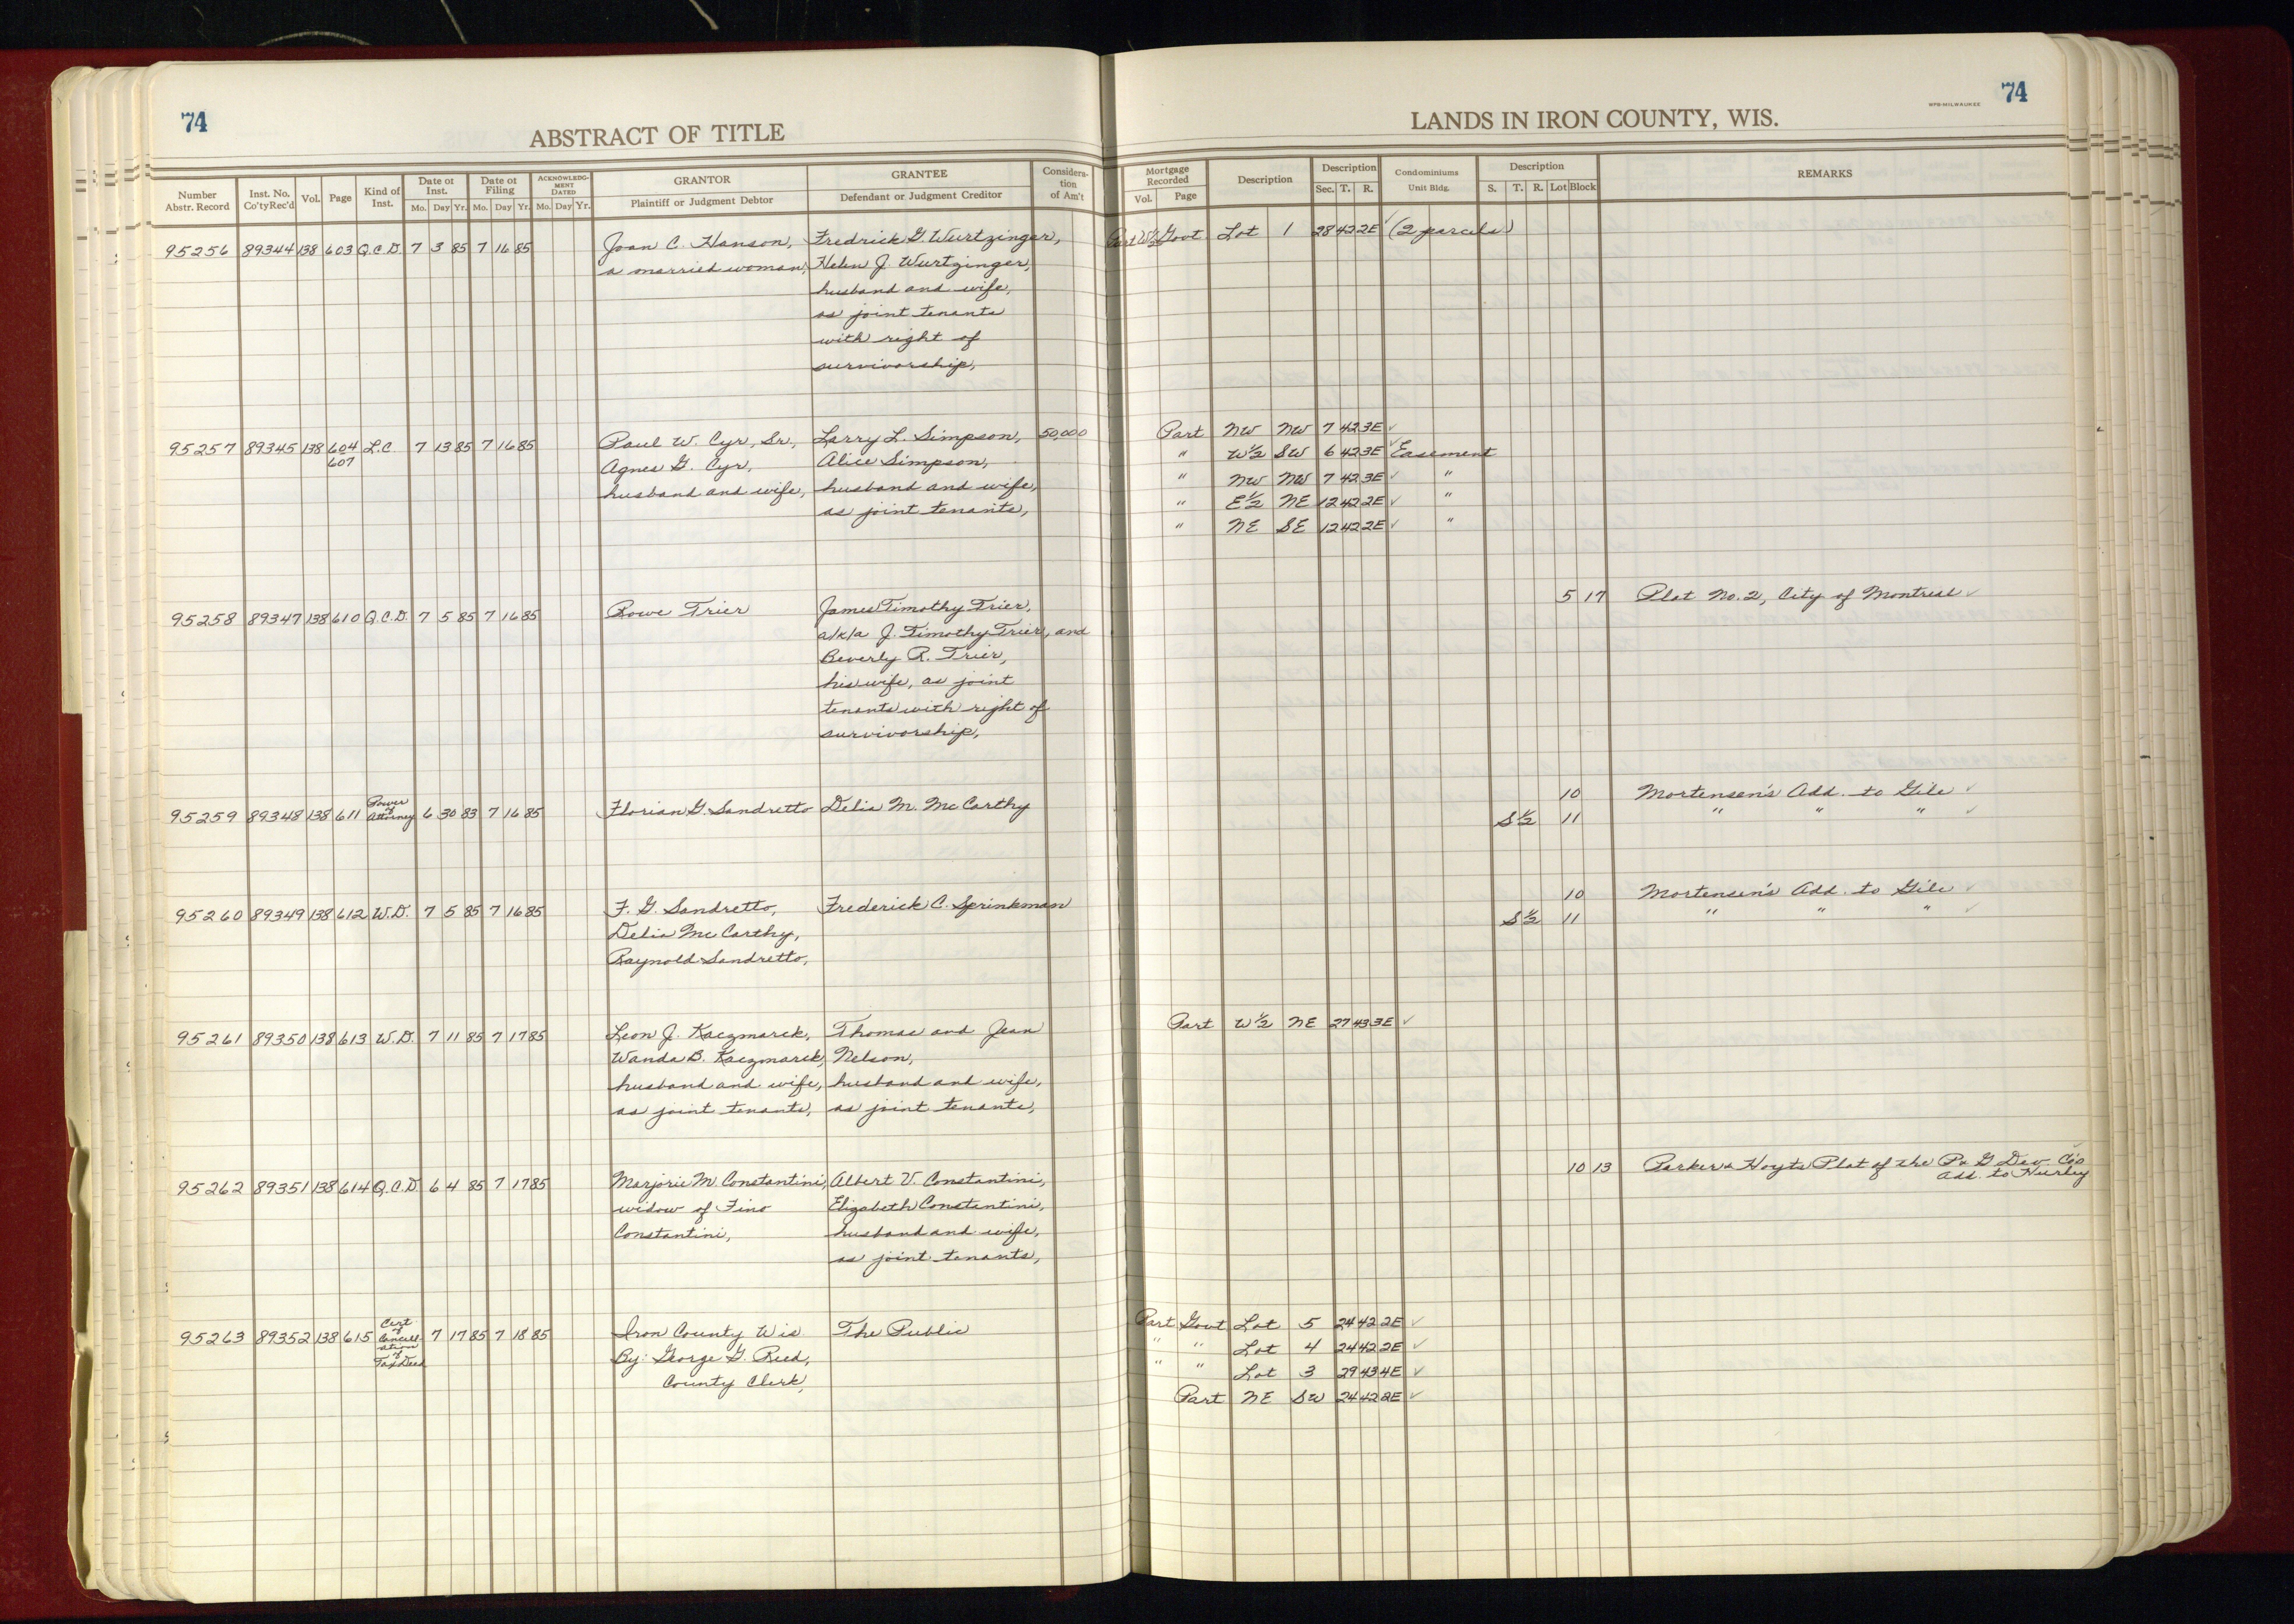 74
ABSTRACT OF TITLE
Number Abstr. Record | Inst. No. Co'ty Rec'd | Vol. | Page | Kind of Inst. | Date of Inst. Mo. Day Yr. | Date of Filing Mo. Day Yr. | ACKNOWLEDGMENT DATED Mo. Day Yr. | GRANTOR Plaintiff or Judgment Debtor | GRANTEE Defendant or Judgment Creditor | Consideration of Am't
95256 89344 138 603 Q.C.D. 7 3 85 7 16 85 Joan C. Hanson, Fredrick G. Wurtzinger,
a married woman, Helen J. Wurtzinger,
husband and wife,
as joint tenants
with right of
survivorship,
95257 89345 138 604 607 L.C. 7 13 85 7 16 85 Paul W. Cyr, Sr., Larry L. Simpson, 50,000
Agnes G. Cyr, Alice Simpson,
husband and wife, husband and wife,
as joint tenants,
95258 89347 138 610 Q.C.D. 7 5 85 7 16 85 Rowe Trier James Timothy Trier,
a/k/a J. Timothy Trier, and
Beverly R. Trier,
his wife, as joint
tenants with right of
survivorship,
95259 89348 138 611 Power of Attorney 6 30 83 7 16 85 Florian G. Sandretto Delia M. McCarthy
95260 89349 138 612 W.D. 7 5 85 7 16 85 F. G. Sandretto, Frederick C. Sprinkman
Delia McCarthy,
Raynold Sandretto,
95261 89350 138 613 W.D. 7 11 85 7 17 85 Leon J. Kaczmarek, Thomas and Jean
Wanda B. Kaczmarek, Nelson,
husband and wife, husband and wife,
as joint tenants, as joint tenants,
95262 89351 138 614 Q.C.D. 6 4 85 7 17 85 Marjorie M. Constantini, Albert V. Constantini,
widow of Fino Elizabeth Constantini,
Constantini, husband and wife,
as joint tenants,
95263 89352 138 615 Cert of Cancellation of Tax Deed 7 17 85 7 18 85 Iron County Wis The Public
By: George G. Reed,
County Clerk,
WPB-MILWAUKEE 74
LANDS IN IRON COUNTY, WIS.
Mortgage Recorded Vol. Page | Description | Description Sec. T. R. | Condominiums Unit Bldg. | Description S. T. R. Lot Block | REMARKS
Part W½ Govt Lot 1 28 42 2E ✓ (2 parcels)
Part NW NW 7 42 3E ✓
" W½ SW 6 42 3E ✓ Easement
" NW NW 7 42 3E ✓ "
" E½ NE 12 42 2E ✓ "
" NE SE 12 42 2E ✓ "
5 17 Plat No. 2, City of Montreal ✓
10 Mortensen's Add. to Gile ✓
S½ 11 " " " ✓
10 Mortensen's Add. to Gile ✓
S½ 11 " " " ✓
Part W½ NE 27 43 3E ✓
10 13 Parker & Hoyts Plat of the P & G Dev Co's ✓
Add. to Hurley
Part Govt Lot 5 24 42 2E ✓
" " Lot 4 24 42 2E ✓
" " Lot 3 29 43 4E ✓
Part NE SW 24 42 2E ✓